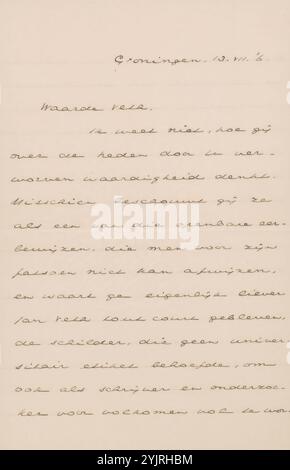 Groningen. 13. VII. '6.
Waarde Veth.
Ik weet niet, hoe gij
over de heden door U ver-
worven waardigheid denkt.
Misschien beschouwt gij ze
als een van die openbare eer-
bewijzen, die men voor zijn
fatsoen niet kan afwijzen,
en waart ge eigenlijk liever
Jan Veth tout court gebleven,
de schilder, die geen univer
sitair etiket behoefde, om
ook als schrijver en onderzoe-
ker voor volkomen vol te wor-
alamy
Image ID: 2YJRHBM
www.alamy.com